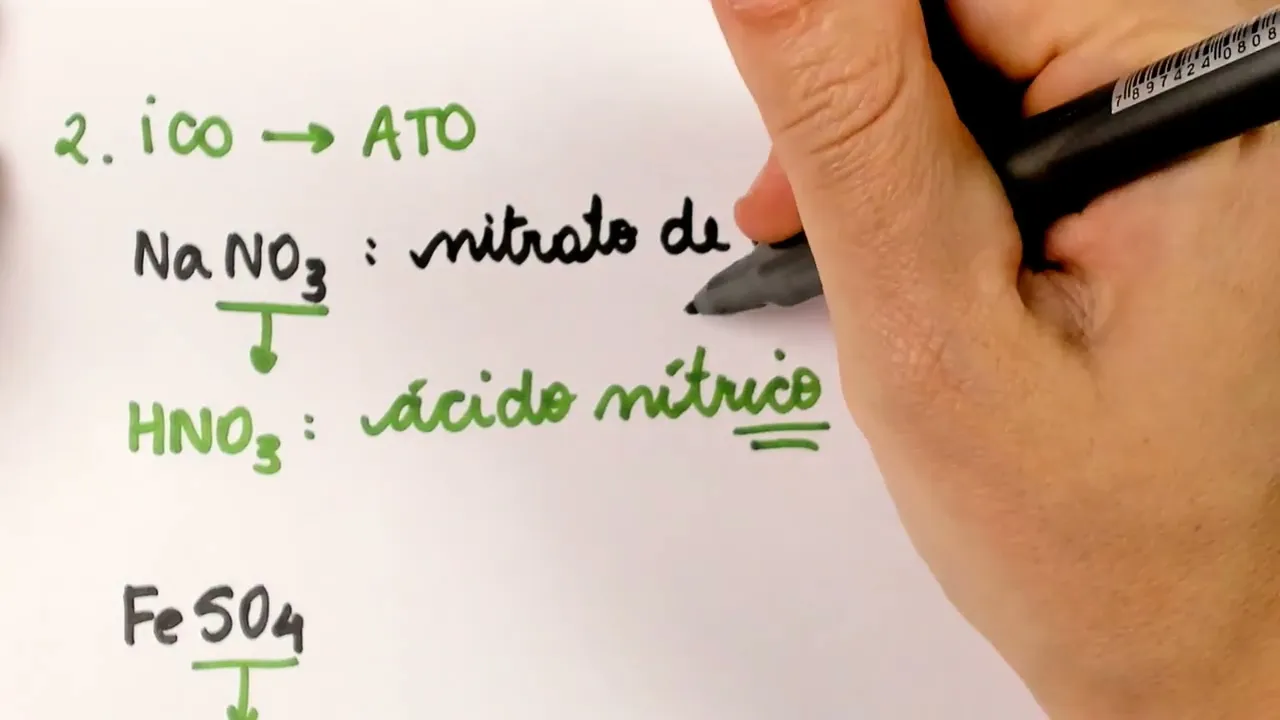 2. ico → ATO
NaNO3 : nitrato de
HNO3 : ácido nítrico
FeSO4
7897424 0808